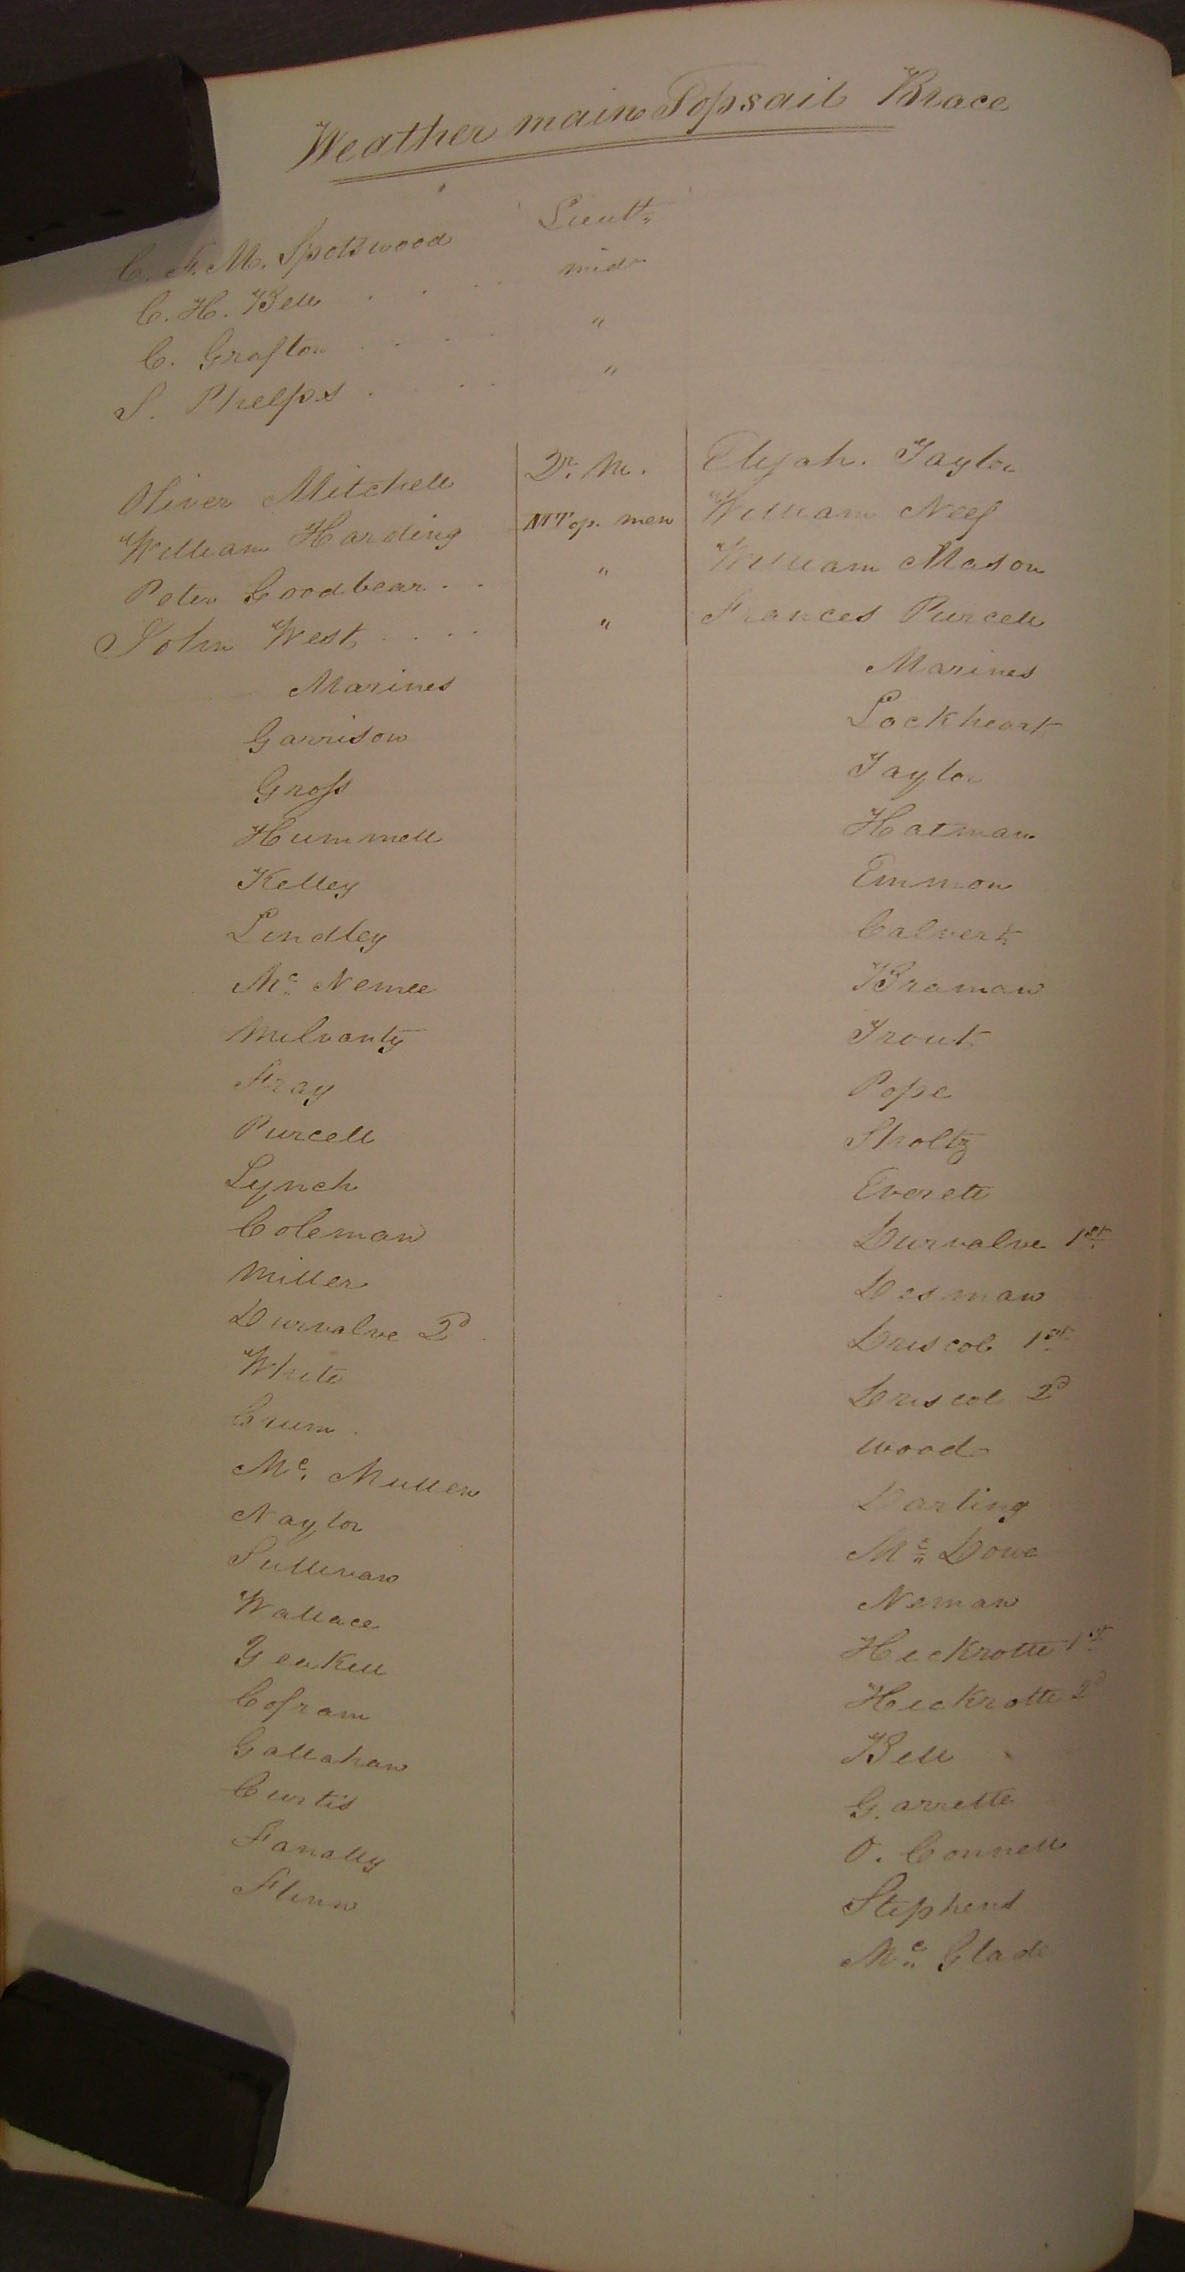 Weather main Topsail Brace
C. F. M. Spotswood Lieutt.
C. H. Bell . . . . mid
C. Grafton . . . . "
S. Phelps . . . . "
Oliver Mitchell Qr. M. Elijah. Taylor
William Harding M Top. men William Neef
Peter Goodbear . . " William Mason
John West . . . . " Frances Purcell
Marines Marines
Garrison Lockheart
Gross Taylor
Hummell Hatman
Kelley Emmon
Lindley Calvert
Mc. Nemee Braman
Milvanty Trout
Fray Pope
Purcell Sholtz
Lynch Everett
Coleman Durvalve 1st.
Miller Desman
Durvalve 2d Driscol 1st.
White Driscol 2d
Crum. Wood
Mc. Mullen Darling
Naylor Mc. Dowe
Sullivan Neman
Wallace Heckrotte 1st
Yeakell Heckrotte 2d
Cofram Bell
Gallahan Garrette
Curtis O. Connell
Fanally Stephens
Flinn Mc. Glade